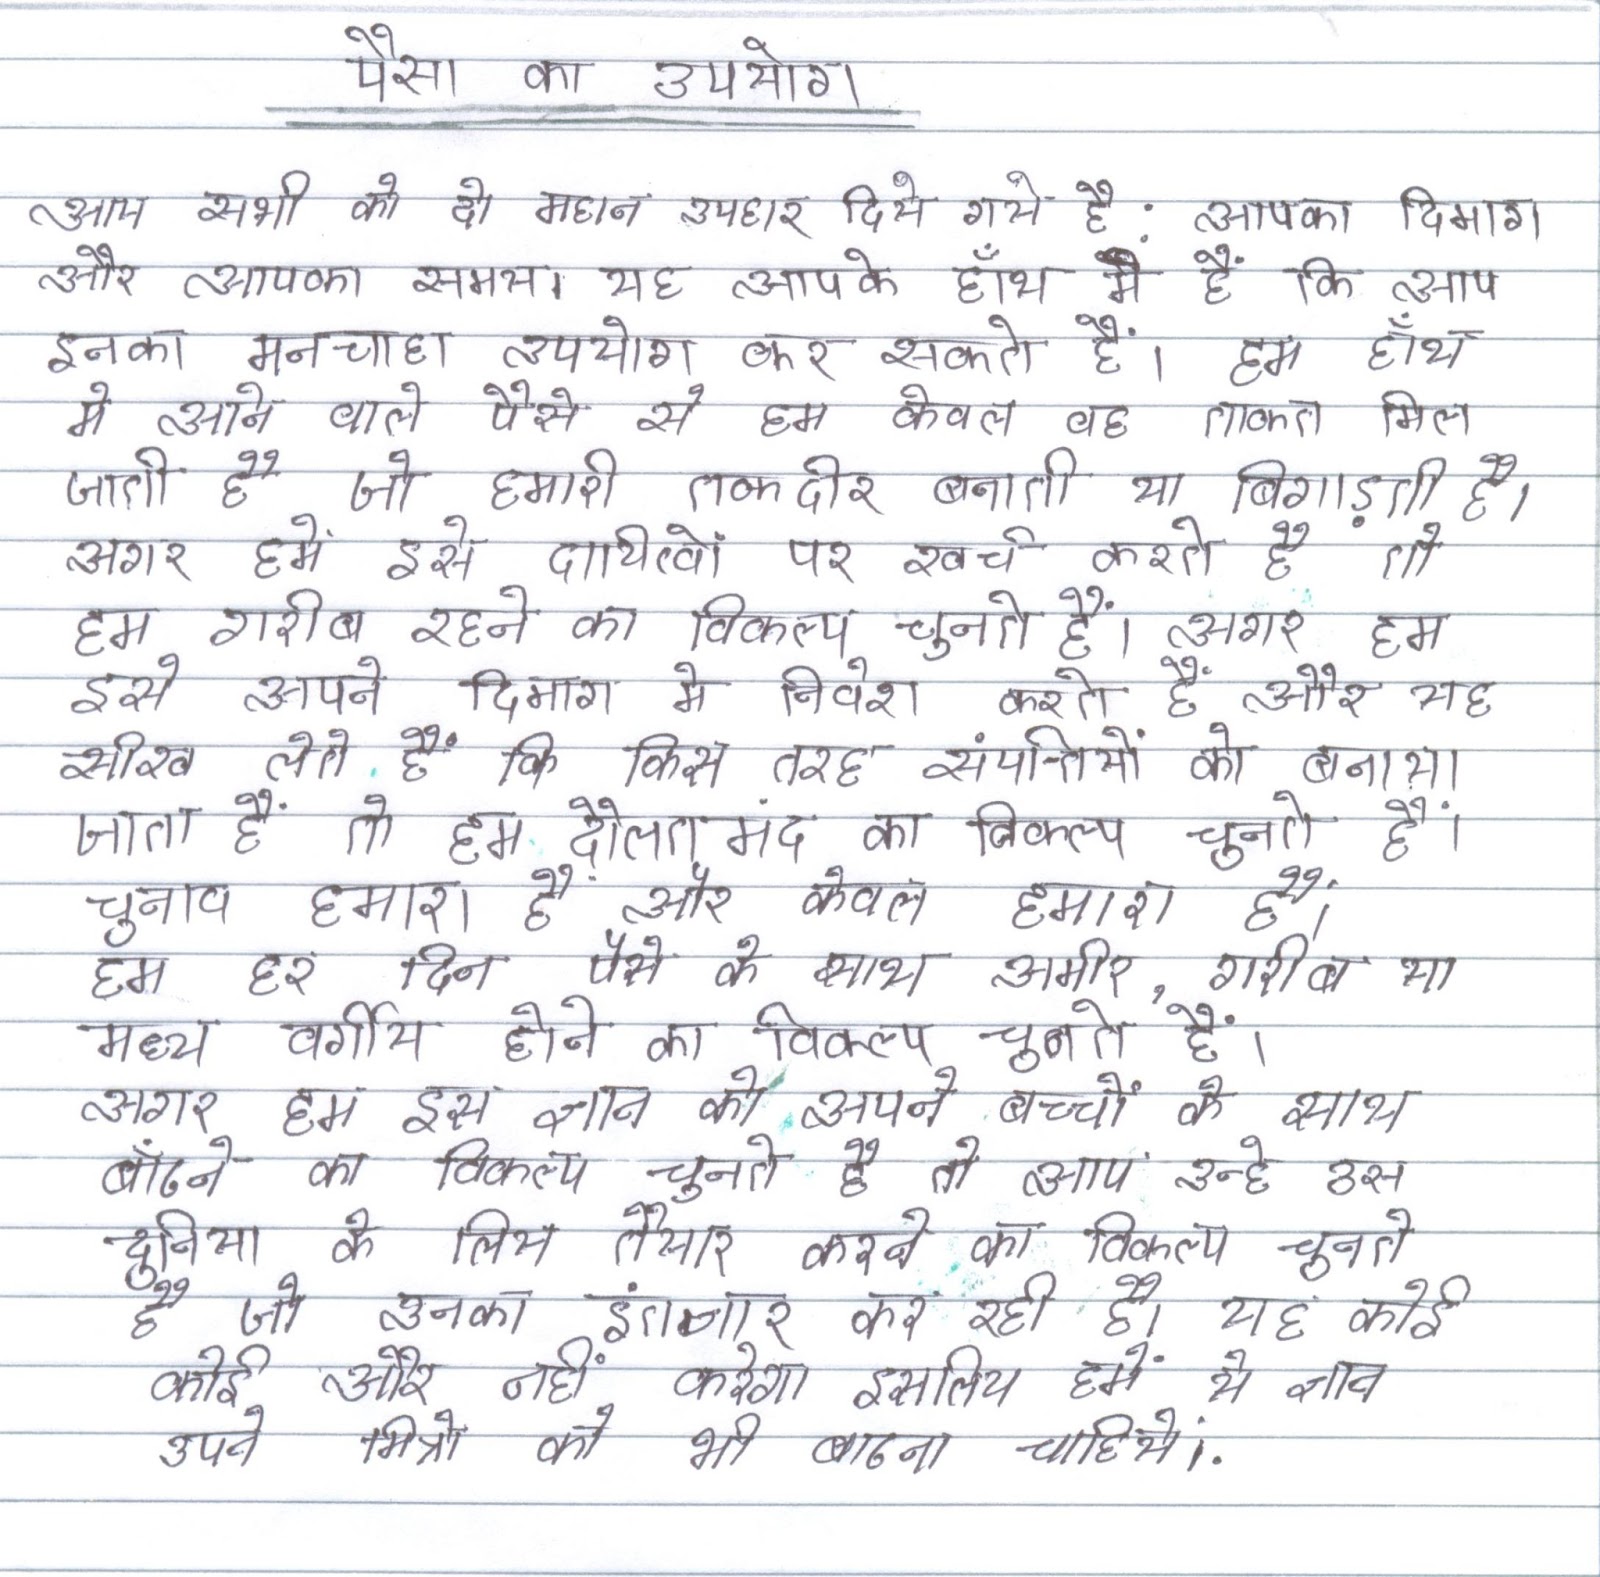 पैसा का उपयोग
आप सभी को दो महान उपहार दिये गये है : आपका दिमाग
और आपका समय। यह आपके हाँथ मे हैं कि आप
इनका मनचाहा उपयोग कर सकते हैं। हम हाँथ
मे आने वाले पैसे से हम केवल वह ताकत मिल
जाती है जो हमारी तकदीर बनाती या बिगाड़ती है।
अगर हमें इसे दायित्वों पर खर्च करते है तो
हम गरीब रहने का विकल्प चुनते हैं। अगर हम
इसे अपने दिमाग मे निवेश करते हैं और यह
सीख लेते हैं कि किस तरह संपत्तियों को बनाया
जाता हैं तो हम दौलत मंद का बिकल्प चुनते हैं।
चुनाव हमारा हैं और केवल हमारा हैं।
हम हर दिन पैसे के साथ अमीर, गरीब या
मध्य वर्गीय होने का विकल्प चुनते हैं।
अगर हम इस ज्ञान को अपने बच्चों के साथ
बाँटने का विकल्प चुनते है तो आप उन्हे उस
दुनिया के लिय तैयार करने का विकल्प चुनते
है जो उनका इंतजार कर रही है। यह कोई
कोई और नहीं करेगा इसलिय हमें ये ज्ञान
उपने मित्रो को भी बाटना चाहिये।.